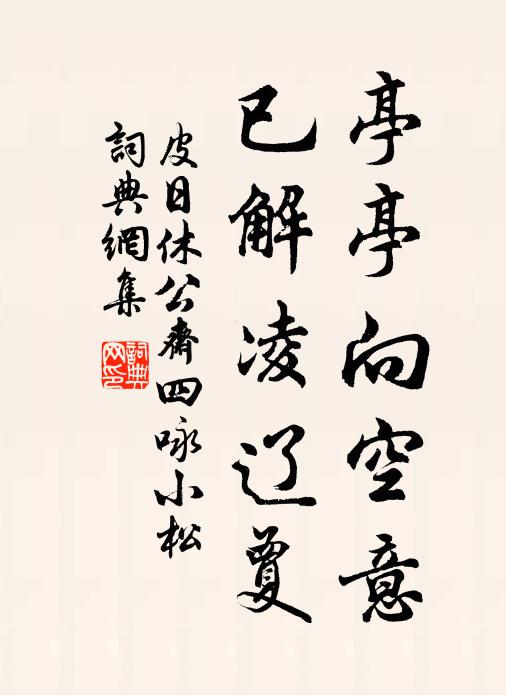 亭亭向空意
已解凌辽夐
皮日休公齋四咏小松
詞典網集
詞典网印